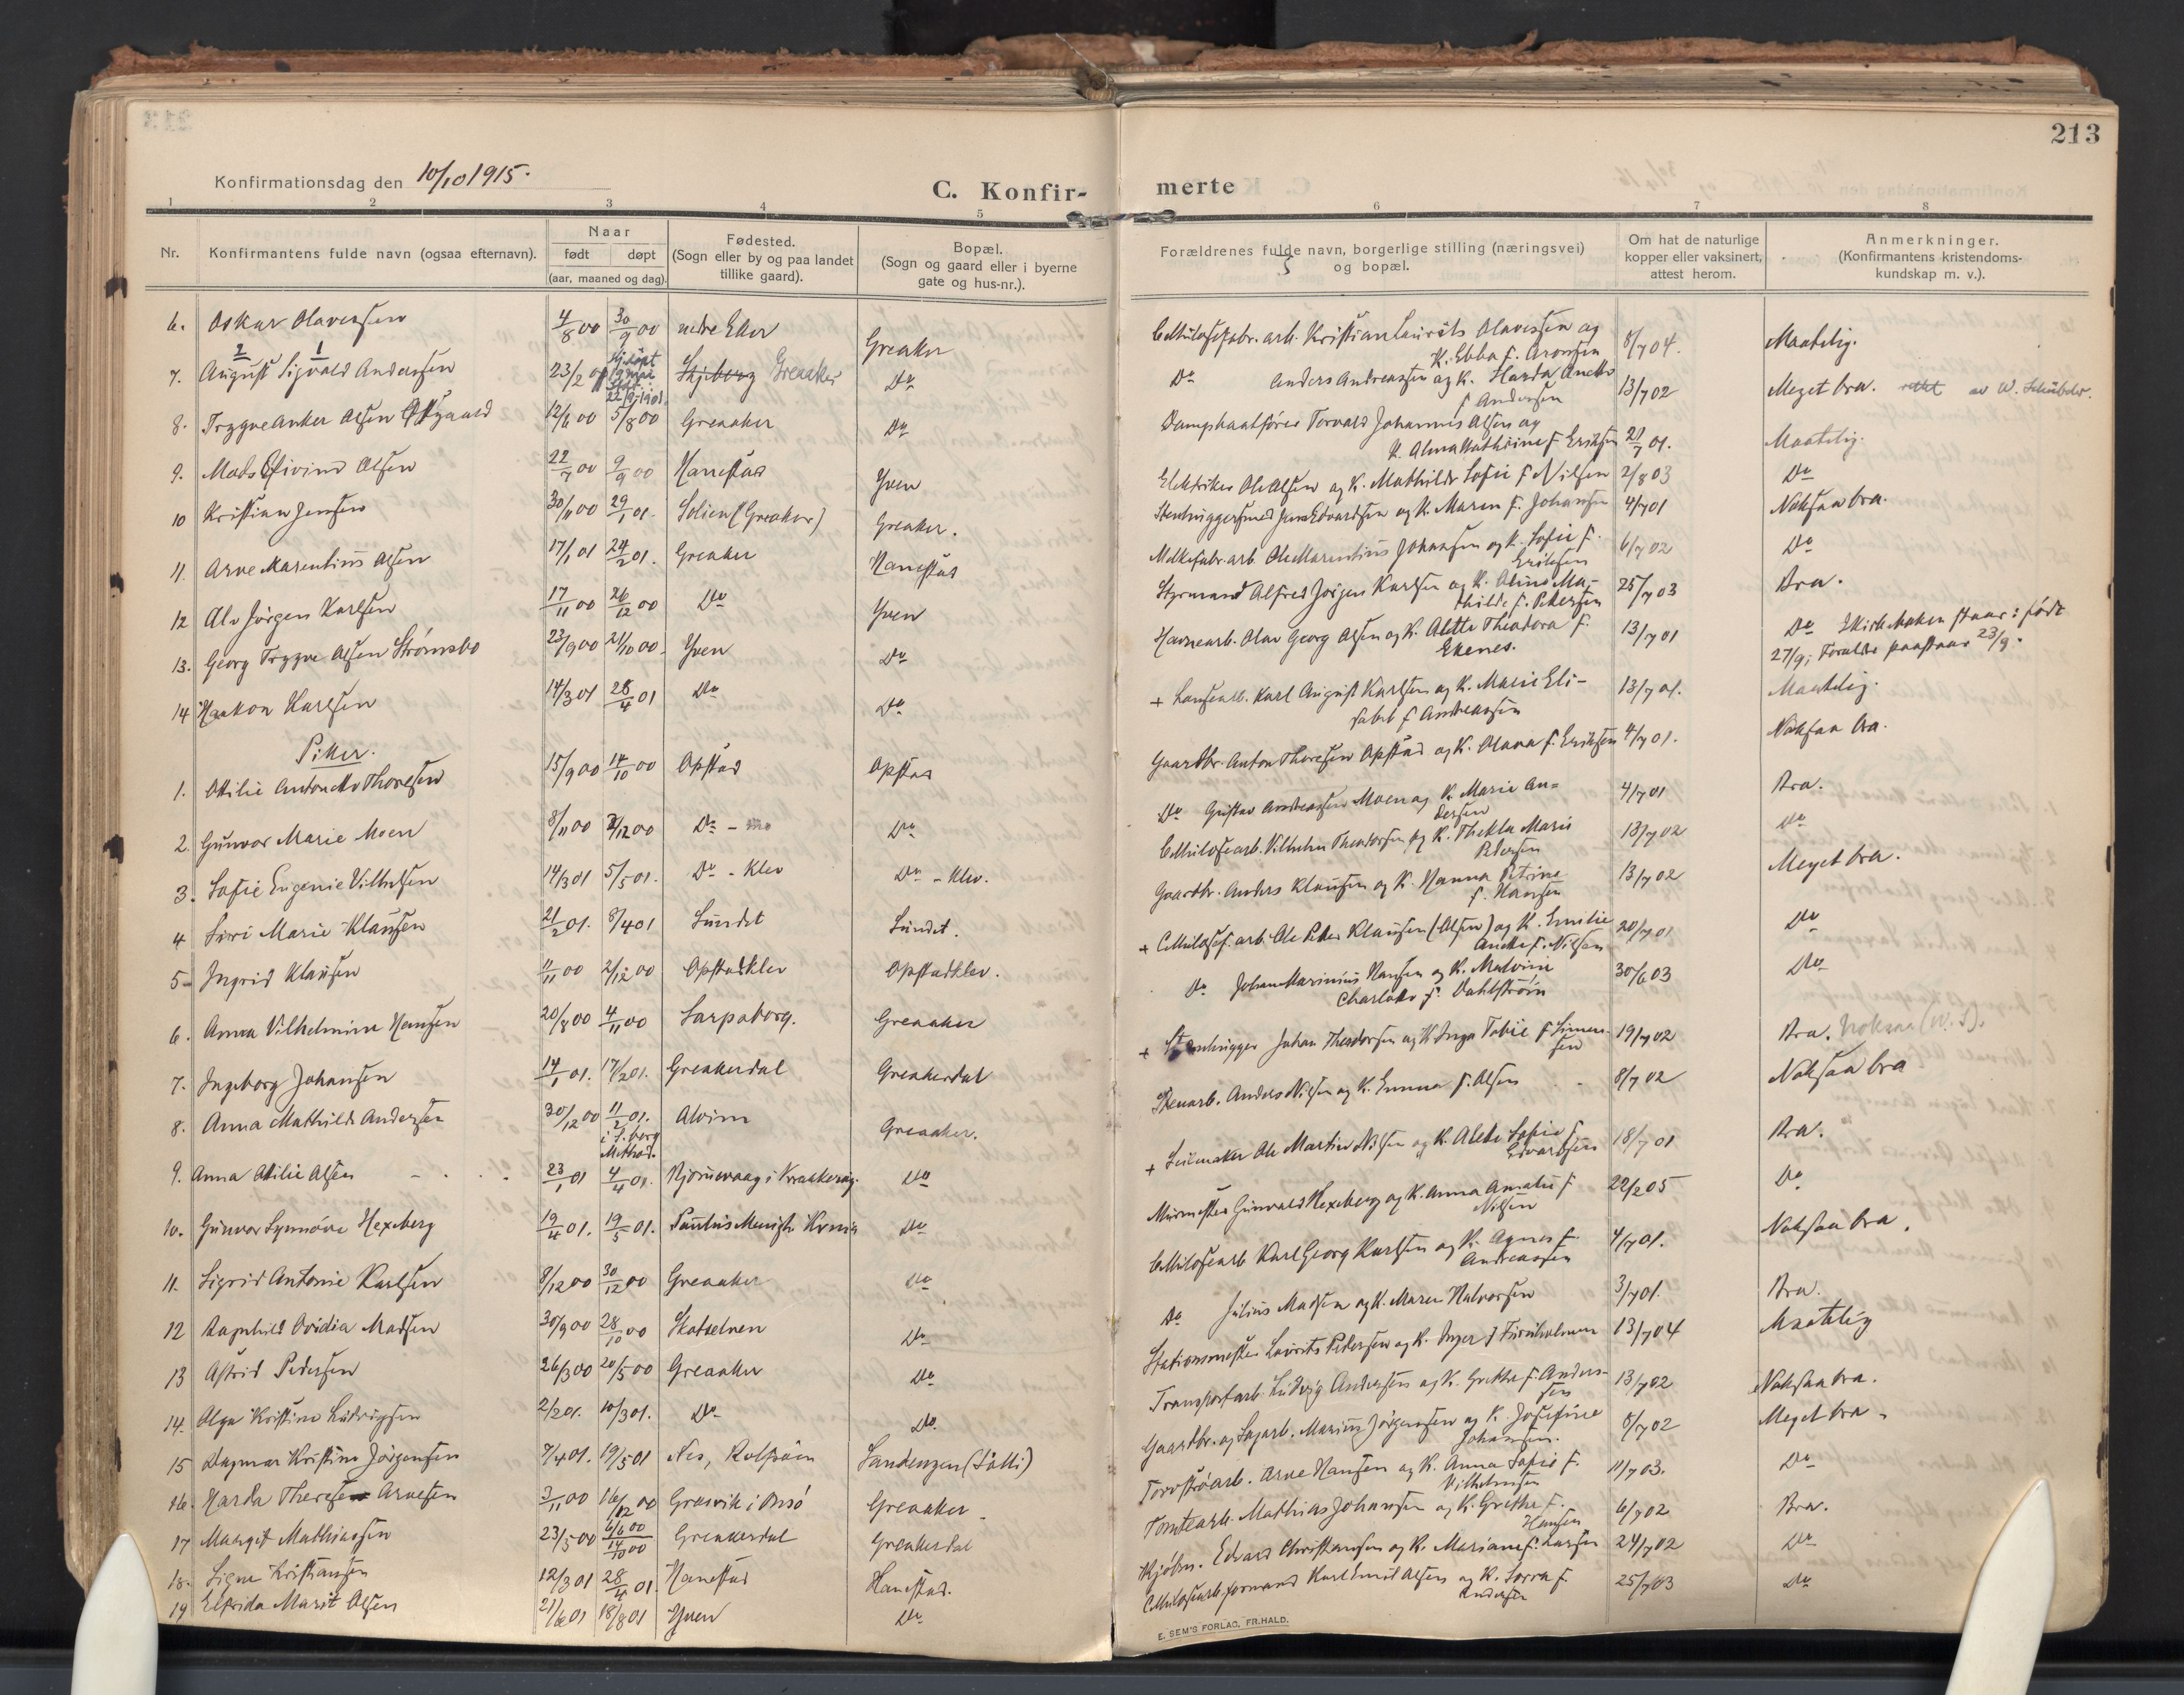 213
Konfirmationsdag den 10/10 1915.
C. Konfir-
merte
1 2 3 4 5 6 7 8
Nr.
Konfirmantens fulde navn (ogsaa efternavn).
Naar
født døpt
(aar, maaned og dag).
Fødested.
(Sogn eller by og paa landet
tillike gaard).
Bopæl.
(Sogn og gaard eller i byerne
gate og hus-nr.).
Forældrenes fulde navn, borgerlige stilling (næringsvei)
og bopæl.
Om hat de naturlige
kopper eller vaksinert,
attest herom.
Anmerkninger.
(Konfirmantens kristendoms-
kundskap m. v.).
6. Oskar Olavessen 4/8 00 30/9 00 nedre Eker Greaker
Cellulosefabr. arb. Kristian Laurits Olavessen og
K. Ebba f. Aronsen 8/7 04. Maatelig.
2 1
7. August Sigvald Andersen 23/2 00 22/9 1901 Skjeberg Greaaker Do
Do Anders Andreassen og K. Harda Anette
f Andersen 13/7 02 Meget bra. rettet av W. Schübeler.
8. Trygve Anker Olsen Østgaard 12/6 00 5/8 00 Greaaker Do
Dampbaatfører Torvald Johannes Olsen og
K. Alma Kathrine f Eriksen 21/7 01. Maatelig.
9. Mads Eivind Olsen 22/7 00 9/9 00 Hannestad Yven
Elektriker Ole Olsen og K. Mathilde Sofie f Nilsen 2/8 03 Do
10 Kristian Jensen 30/11 00 29/1 01. Solien (Greaker) Greaker.
Stenhuggersmed Jens Edvardsen og K. Maren f. Johansen 4/7 01 Noksaa bra.
11. Arne Marentius Olsen 17/1 01 24/2 01. Greaker Hannestad
Melkefabr. arb. Ole Marentius Johansen og K. Sofie f.
Eriksen 6/7 02 Do
12 Alv Jørgen Karlsen 17/11 00 26/12 00 Do Yven
Styrmand Alfred Jørgen Karlsen og K. Aline Ma-
thilde f. Petersen 25/7 03 Bra.
13. Georg Trygve Olsen Strømsbo 23/9 00 21/10 00. Yven Do
Havnearb. Olav Georg Olsen og K. Alette Theodora f.
Ekenes. 13/7 01 Do I kirkeboken staar: født
27/9; Forældre paastaar 23/9.
14 Haakon Karlsen 14/3 01 28/4 01 Do Do
+ Lansearb. Karl August Karlsen og K. Marie Eli-
sabet f Andreassen 13/7 01. Maatelig.
Piker.
1. Otilie Antonette Thoresen 15/9 00 14/10 00 Opstad Opstad
Gaardbr. Anton Thoresen Opstad og K. Olava f. Eriksen 4/7 01. Noksaa bra.
2. Gunvor Marie Moen 8/11 00 2/12 00 Do - Mo Do
Do Gustav Andreassen Moen og K. Marie An-
dersen 4/7 01 Bra.
3. Sofie Eugenie Vilhelsen 14/3 01 5/5 01. Do - Klev Do - Klev.
Cellulosearb. Vilhelm Theodorsen og K. Thekla Marie
Petersen 13/7 02 Do
4 Siri Marie Klausen 21/2 01. 8/4 01 Sundet Sundet.
Gaardbr. Anders Klausen og K. Hanna Petrine
f. Hansen 13/7 02 Meget bra.
5 Ingrid Klausen 11/11 00 2/12 00 Opstadklev Opstadklev.
+ Cellulosef. arb. Ole Peder Klausen (Olsen) og K. Emilie
Anette f. Nilsen 20/7 01 Do
6. Anna Vilhelmine Hansen 20/8 00 4/11 00 Sarpsborg. Greaaker
Do Johan Marinius Hansen og K. Malvine
Charlotte f. Dahlstrøm 30/6 03 Do
7. Ingeborg Johansen 14/1 01. 17/2 01. Greakerdal Greakerdal
+ Stenhugger Johan Theodorsen og K Inga Tobie f Simen-
sen 19/7 02 Bra. Noksaa (W. S).
8. Anna Mathilde Andersen 30/12 00 11/2 01. i S.borg Method. Alvim Greaaker.
Stenarb. Anders Nilsen og K. Emma f. Olsen 8/7 02 Noksaa bra
9. Anna Otilie Olsen 23/1 01 4/4 01. Kjørrevaag i Kraakerøy Do
+ Seilmaker Ole Martin Nilsen og K. Alette Sofie f
Edvardsen 18/7 01 Bra.
10. Gunvor Synnøve Hexeberg 19/4 01. 19/5 01. Paulus Menigh. Krnia Do
Murmester Gunvald Hexeberg og K. Anna Amalie f
Nilsen 22/2 05 Do
11. Sigrid Antonie Karlsen 8/12 00 30/12 00 Greaaker Do
Cellulosearb Karl Georg Karlsen og K. Agnes f.
Andreassen 4/7 01. Noksaa bra.
12 Ragnhild Ovidia Madsen 30/9 00 28/10 00 Skotselven Do
Do Julius Madsen og K. Maren Halvorsen 3/7 01. Bra.
13 Astrid Pedersen 26/3 00 20/5 00 Greaaker Do
Stationsmester Laurits Pedersen og K. Inger f Furuholmen 13/7 04 Maatelig
14. Olga Kristine Ludvigsen 2/2 01. 10/3 01. Do Do
Transportarb. Ludvig Andersen og K. Grethe f. Anders-
sen 13/7 02 Noksaa bra.
15 Dagmar Kristine Jørgensen 7/4 01. 19/5 01 Nes, Rolfsøen Sandengen (Tolli)
Gaardbr. og Sagarb. Marius Jørgensen og K. Josefine
Johansen. 8/7 02 Meget bra.
16. Harda Therese Arnesen 3/11 00 16/12 00 Gresvik i Onsø Greaaker
Torvstrøarb. Arne Hansen og K. Anna Sofie f.
Vilhelmsen 11/7 03. Do
17 Margit Mathiassen 23/5 00 6/6 00 14/10 00 Greakerdal Greakerdal
Tomtearb. Mathias Johansen og K. Grethe f.
Hansen 6/7 02 Bra.
18. Signe Kristiansen 12/3 01 28/4 01. Hannestad Hannestad.
Kjøbm. Edvard Christiansen og K. Mariane f. Larsen 24/7 02 Do
19 Elfrida Marit Olsen 21/6 01 18/8 01 Yven Do
Cellulosearb. formand Karl Emil Olsen og K. Lorra f.
Andersen 25/7 03 Do
E. SEM'S FORLAG, FR.HALD.